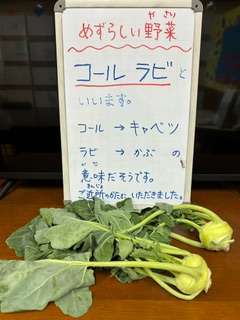 めずらしい野菜
やさい
コールラビと
いいます。
コール→キャベツ
ラビ→かぶの
いみ
意味だそうです。
ご近所のかたに いただきました。